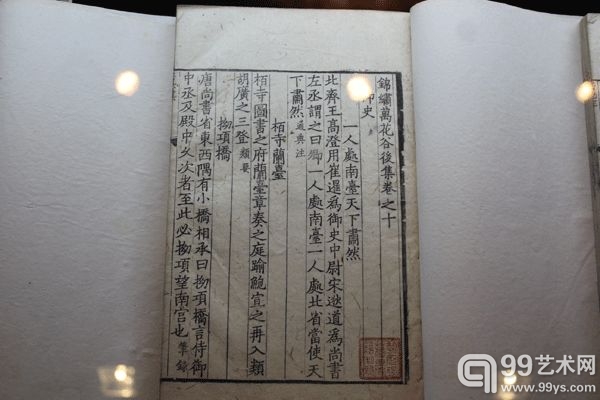 錦繡萬花谷後集卷之十
御史
一人處南臺天下肅然
北齊王高澄用崔暹為御史中尉宋遊道為尚書
左丞謂之曰卿一人處南臺一人處北省當使天
下肅然 通典注
栢寺蘭臺
栢寺圖書之府蘭臺章奏之庭踰鮑宣之再入類
胡廣之三登 類要
拗項橋
唐尚書省東西隅有小橋相承曰拗項橋言侍御
中丞及殿中久次者至此必拗項望南宮也 筆錄
99艺术网
www.99ys.com